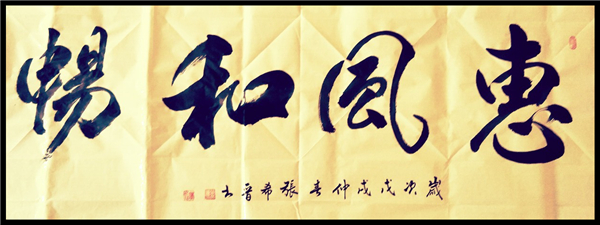 惠風和暢
歲次戊戌仲春張希晉書